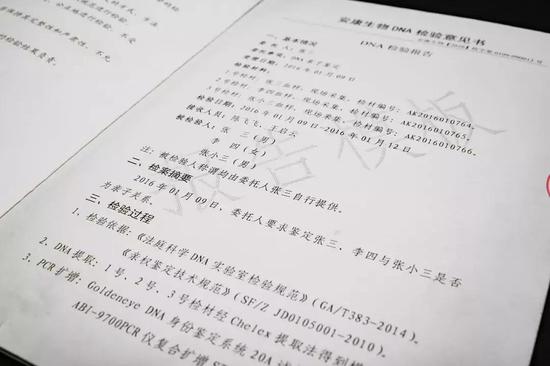 安康生物DNA检验意见书
DNA 检验报告
一、基本情况
委 托 人：张三
委托事项：DNA 亲子鉴定
受理日期：2016 年 01 月 09 日
检验材料：
1 号检材：张三血样，现场采集，检材编号：AK2016010764，
2 号检材：李四血样，现场采集，检材编号：AK2016010765，
3 号检材：张小三血样，现场采集，检材编号：AK2016010766。
检验日期：2016 年 01 月 09 日-2016 年 01 月 12 日
接收人员：陈飞飞、王启云
被检验人：张 三（男）
李 四（女）
张小三（男）
注：被检验人称谓均由委托人张三自行提供。
二、检案摘要
2016 年 01 月 09 日，委托人要求鉴定张三、李四与张小三是否
为亲子关系。
三、检验过程
1、检验依据：《法庭科学 DNA 实验室检验规范》（GA/T383-2014）。
《亲权鉴定技术规范》（SF/Z JD0105001-2010）。
2、DNA 提取：1 号、2 号、3 号检材经 Chelex 提取法得到模
3、PCR 扩增：Goldeneye DNA 身份鉴定系统 20A
ABI-9700PCR 仪复合扩增
报告模版